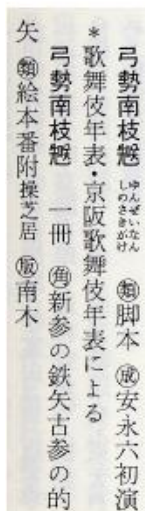 弓勢南枝魁 ゆんぜいなんしのさきがけ ㊞類脚本 ㊞成安永六初演
＊歌舞伎年表・京阪歌舞伎年表による
弓勢南枝魁 一冊 ㊞角新参の鉄矢古参の的
矢 ㊞類絵本番附操芝居 ㊞版南木